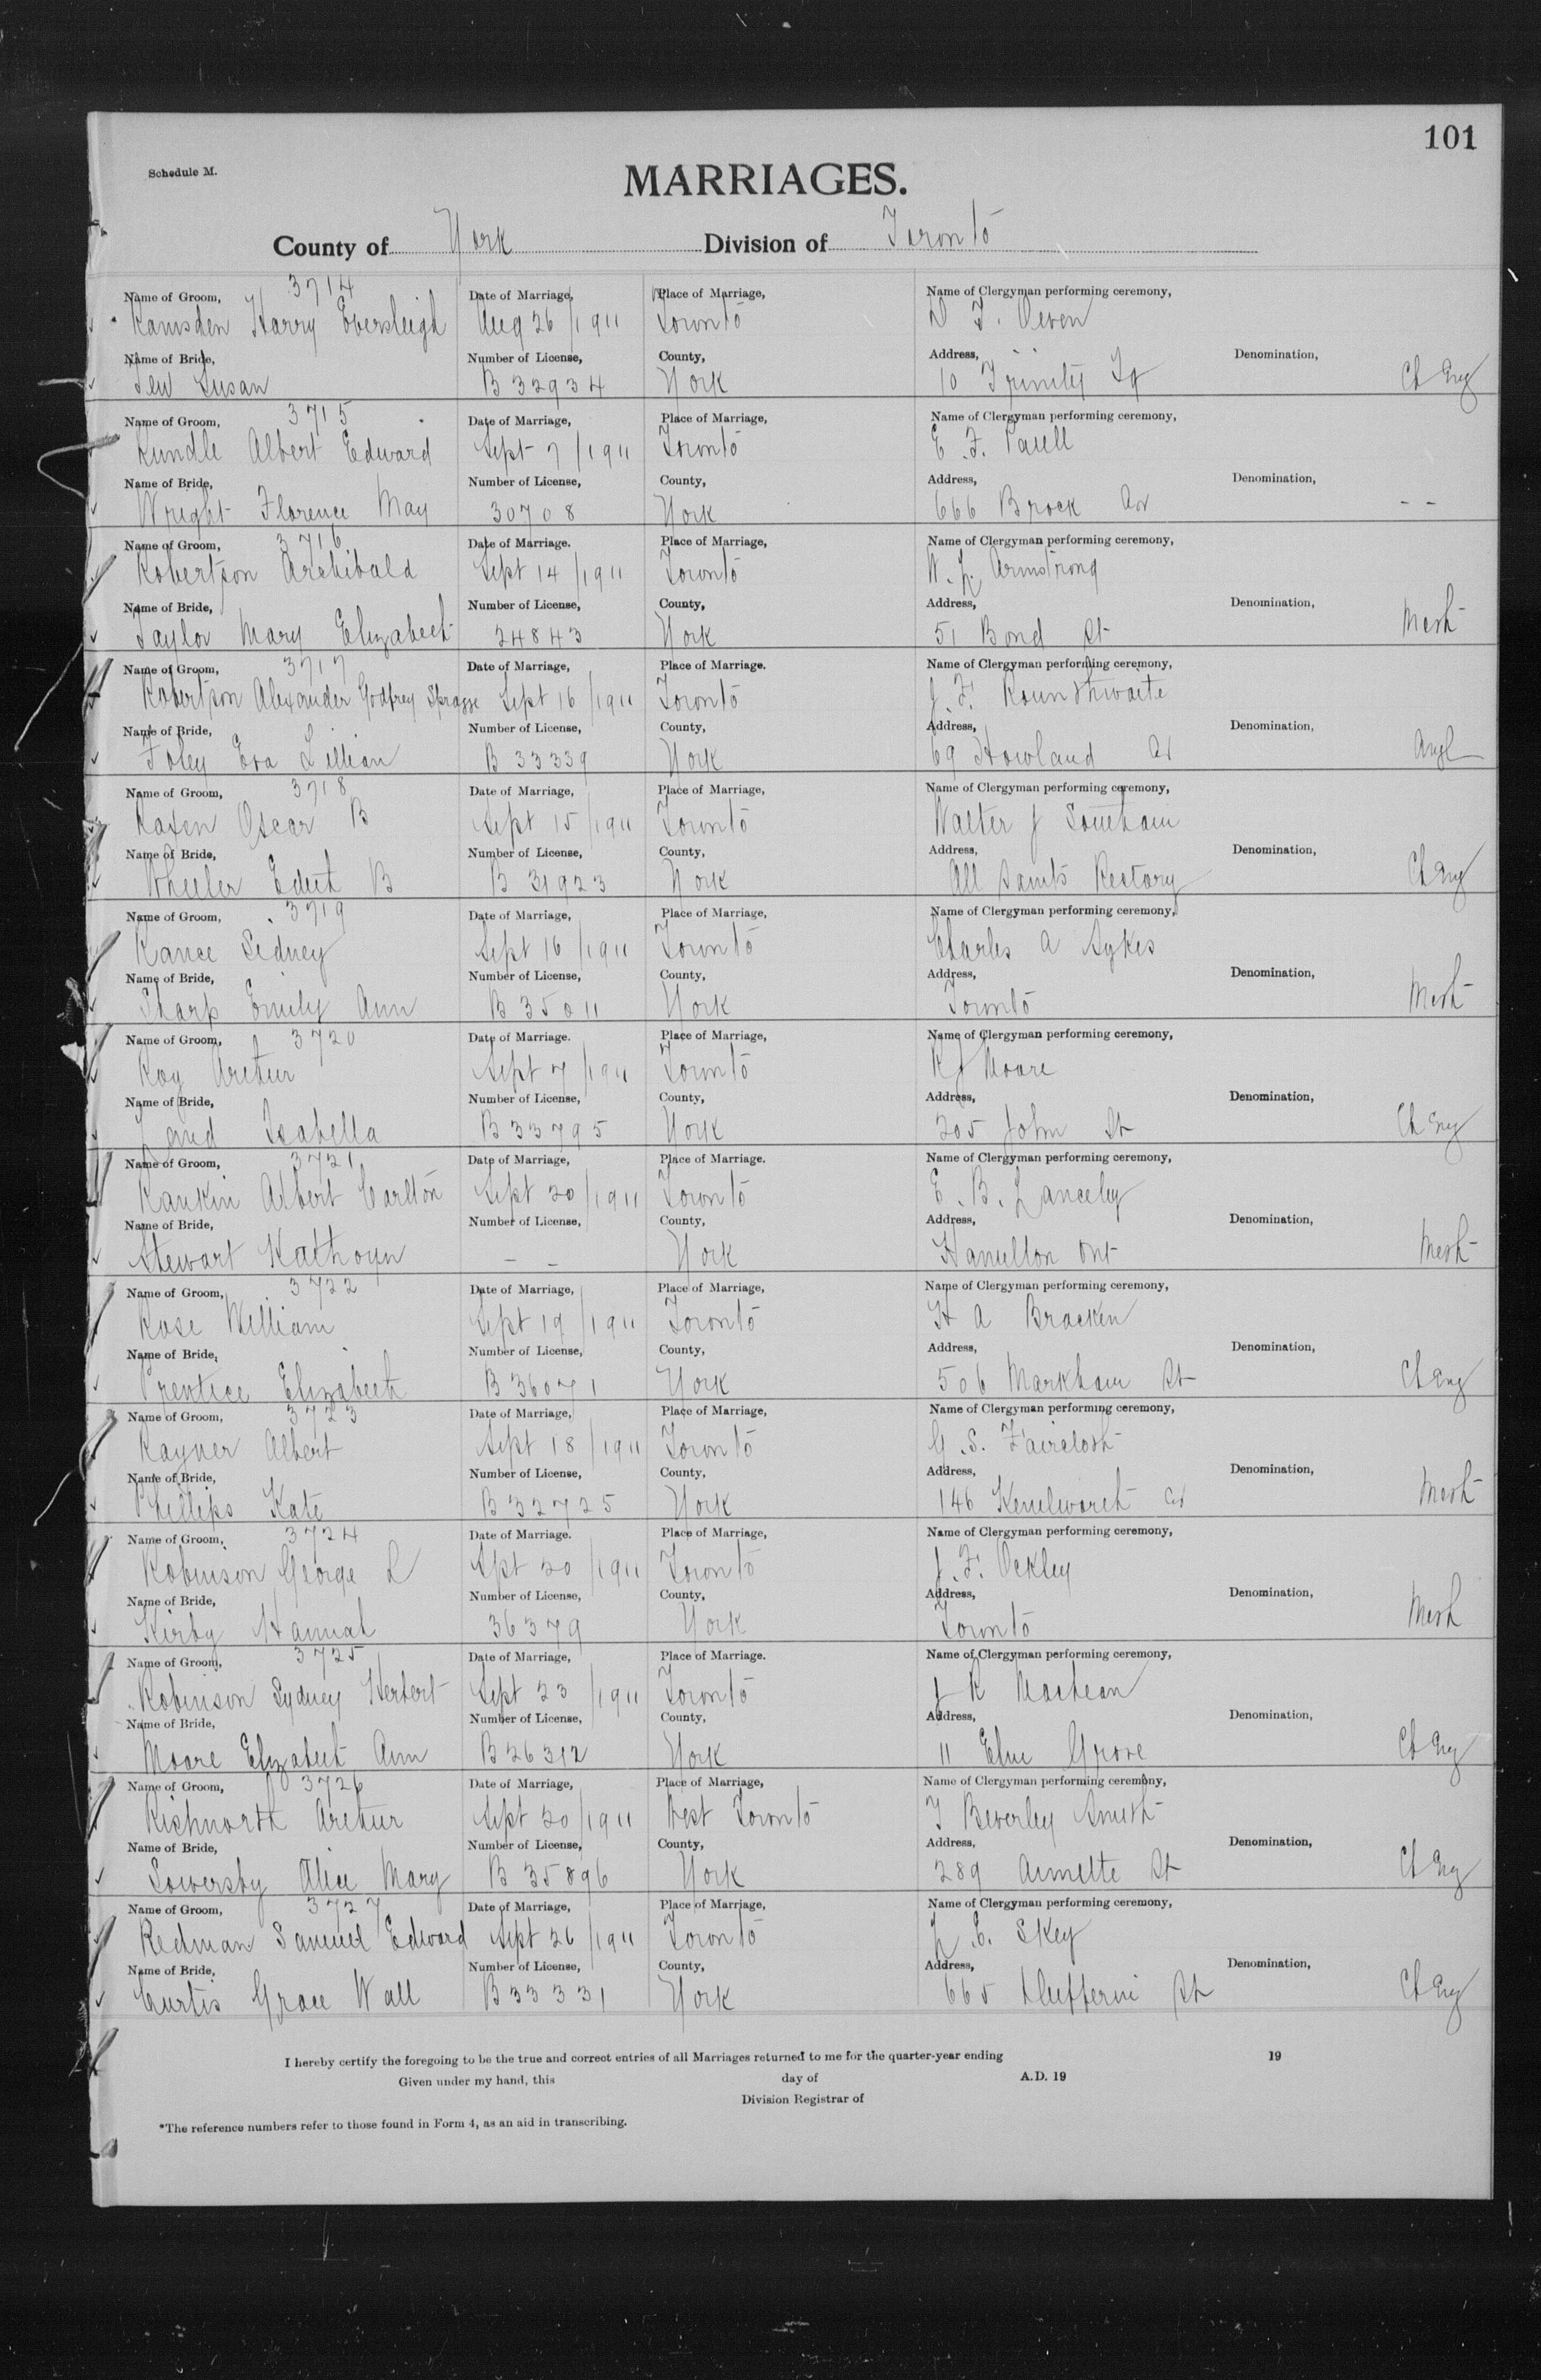 101
Schedule M.
MARRIAGES.
County of York Division of Toronto
3714
Name of Groom, Date of Marriage, Place of Marriage, Name of Clergyman performing ceremony,
Ramsden Harry Eversleigh Aug 26 / 1911 Toronto D T. Owen
Name of Bride, Number of License, County, Address, Denomination,
Tew Susan B 32934 York 10 Trinity Sq Ch Eng
3715
Name of Groom, Date of Marriage, Place of Marriage, Name of Clergyman performing ceremony,
Rundle Albert Edward Sept 7 / 1911 Toronto E. F.
Name of Bride, Number of License, County, Address, Denomination,
Wright Florence May 30708 York 666 Brock Av - -
3716
Name of Groom, Date of Marriage. Place of Marriage, Name of Clergyman performing ceremony,
Robertson Archibald Sept 14 / 1911 Toronto W. L. Armstrong
Name of Bride, Number of License, County, Address, Denomination,
Taylor Mary Elizabeth 24843 York 51 Bond St Meth
3717
Name of Groom, Date of Marriage, Place of Marriage. Name of Clergyman performing ceremony,
Robertson Alexander Godfrey Spragge Sept 16 / 1911 Toronto J. F. Rounthwaite
Name of Bride, Number of License, County, Address, Denomination,
Foley Eva Lillian B 33339 York 69 Howland Av Angl
3718
Name of Groom, Date of Marriage, Place of Marriage, Name of Clergyman performing ceremony,
Raxen Oscar B Sept 15 / 1911 Toronto Walter J Southam
Name of Bride, Number of License, County, Address, Denomination,
Wheeler Edith B B 31923 York All Saints Rectory Ch Eng
3719
Name of Groom, Date of Marriage, Place of Marriage, Name of Clergyman performing ceremony,
Rance Sidney Sept 16 / 1911 Toronto Charles A Sykes
Name of Bride, Number of License, County, Address, Denomination,
Sharp Emily Ann B 35011 York Toronto Meth
3720
Name of Groom, Date of Marriage. Place of Marriage, Name of Clergyman performing ceremony,
Roy Arthur Sept 7 / 1911 Toronto R J Moore
Name of Bride, Number of License, County, Address, Denomination,
Isabella B 33795 York 205 John St Ch Eng
3721
Name of Groom, Date of Marriage, Place of Marriage. Name of Clergyman performing ceremony,
Rankin Albert Carlton Sept 20 / 1911 Toronto E. B. Lanceley
Name of Bride, Number of License, County, Address, Denomination,
Stewart Kathryn - - York Hamilton Ont Meth
3722
Name of Groom, Date of Marriage, Place of Marriage, Name of Clergyman performing ceremony,
Rose William Sept 19 / 1911 Toronto H A Bracken
Name of Bride, Number of License, County, Address, Denomination,
Prentice Elizabeth B 36071 York 506 Markham St Ch Eng
3723
Name of Groom, Date of Marriage, Place of Marriage, Name of Clergyman performing ceremony,
Rayner Albert Sept 18 / 1911 Toronto G. S. Faircloth
Name of Bride, Number of License, County, Address, Denomination,
Phillips Kate B 32725 York 146 Kenilworth Av Meth
3724
Name of Groom, Date of Marriage. Place of Marriage, Name of Clergyman performing ceremony,
Robinson George L Spt 20 / 1911 Toronto J. F. Ockley
Name of Bride, Number of License, County, Address, Denomination,
Kirby Hannah 36379 York Toronto Meth
3725
Name of Groom, Date of Marriage, Place of Marriage. Name of Clergyman performing ceremony,
Robinson Sydney Herbert Sept 23 / 1911 Toronto J R Macbean
Name of Bride, Number of License, County, Address, Denomination,
Moore Elizabeth Ann B 26312 York 11 Elm Grove Ch Eng
3726
Name of Groom, Date of Marriage, Place of Marriage, Name of Clergyman performing ceremony,
Rishworth Arthur Sept 20 / 1911 West Toronto T Beverley Smith
Name of Bride, Number of License, County, Address, Denomination,
Sowersby Alice Mary B 35896 York 289 Annette St Ch Eng
3727
Name of Groom, Date of Marriage, Place of Marriage, Name of Clergyman performing ceremony,
Redman Samuel Edward Sept 26 / 1911 Toronto L. E. Skey
Name of Bride, Number of License, County, Address, Denomination,
Curtis Grace Wall B 33331 York 665 Dufferin St Ch Eng
I hereby certify the foregoing to be the true and correct entries of all Marriages returned to me for the quarter-year ending 19
Given under my hand, this day of A.D. 19
Division Registrar of
*The reference numbers refer to those found in Form 4, as an aid in transcribing.